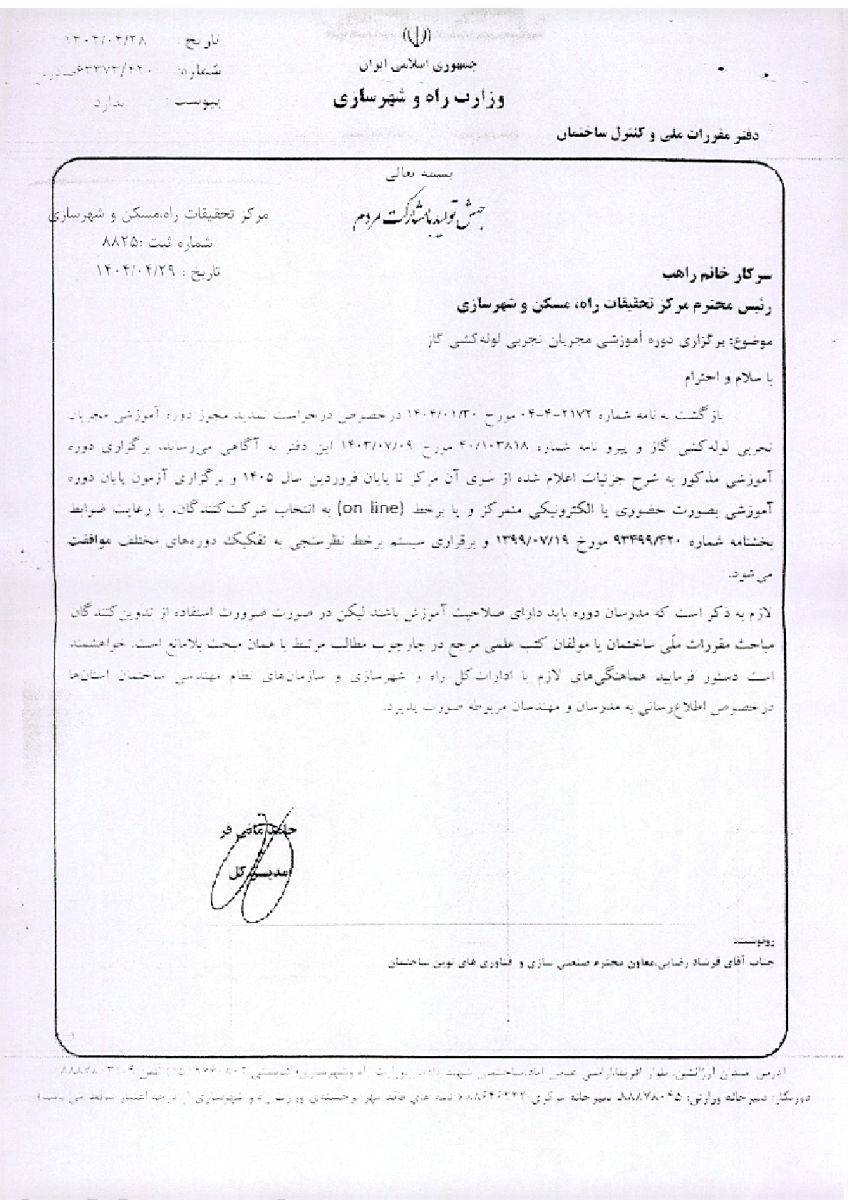 تاریخ :
شماره:
پیوست : ندارد
جمهوری اسلامی ایران
وزارت راه و شهرسازی
دفتر مقررات ملی و کنترل ساختمان
بسمه تعالی
جهش تولید با مشارکت مردم
مرکز تحقیقات راه،مسکن و شهرسازی
شماره ثبت :۸۸۲۵
تاریخ : ۱۴۰۴/۰۴/۲۹
سرکار خانم راهب
رئیس محترم مرکز تحقیقات راه، مسکن و شهرسازی
موضوع: برگزاری دوره آموزشی مجریان تجربی لوله‌کشی گاز
با سلام و احترام
بازگشت به نامه شماره ۲۱۷۲-۴-۰۴ مورخ ۱۴۰۴/۰۱/۳۰ درخصوص درخواست تمدید مجوز دوره آموزشی مجریان
تجربی لوله‌کشی گاز و پیرو نامه شماره ۴۰/۱۰۳۸۱۸ مورخ ۱۴۰۳/۰۷/۰۹ این دفتر به آگاهی می‌رساند، برگزاری دوره
آموزشی مذکور به شرح جزئیات اعلام شده از سوی آن مرکز تا پایان فروردین سال ۱۴۰۵ و برگزاری آزمون پایان دوره
آموزشی بصورت حضوری یا الکترونیکی متمرکز و یا برخط (on line) به انتخاب شرکت‌کنندگان، با رعایت ضوابط
بخشنامه شماره ۹۳۴۹۹/۴۲۰ مورخ ۱۳۹۹/۰۷/۱۹ و برقراری سیستم برخط نظرسنجی به تفکیک دوره‌های مختلف موافقت
می‌شود.
لازم به ذکر است که مدرسان دوره باید دارای صلاحیت آموزش باشند لیکن در صورت ضرورت استفاده از تدوین‌کنندگان
مباحث مقررات ملّی ساختمان یا مولفان کتب علمی مرجع در چارچوب مطالب مرتبط با همان مبحث بلامانع است. خواهشمند
است دستور فرمایید هماهنگی‌های لازم با ادارات‌کل راه و شهرسازی و سازمان‌های نظام مهندسی ساختمان استان‌ها
درخصوص اطلاع‌رسانی به مدرسان و مهندسان مربوطه صورت پذیرد.
حامد مانی فر
مدیر کل
رونوشت:
جناب آقای فرشاد رضایی،معاون محترم صنعتی سازی و فناوری های نوین ساختمان
آدرس: میدان آرژانتین، بلوار آفریقا،اراضی عباس آباد،ساختمان شهید دادمان،وزارت راه وشهرسازی، کدپستی تلفن:
دورنگار: دبیرخانه وزارتی: ۸۸۸۷۸۰۴۵، دبیرخانه مرکزی: (نامه های فاقد مهر برجسته‌ی وزارت راه و شهرسازی از درجه اعتبار ساقط می باشد)